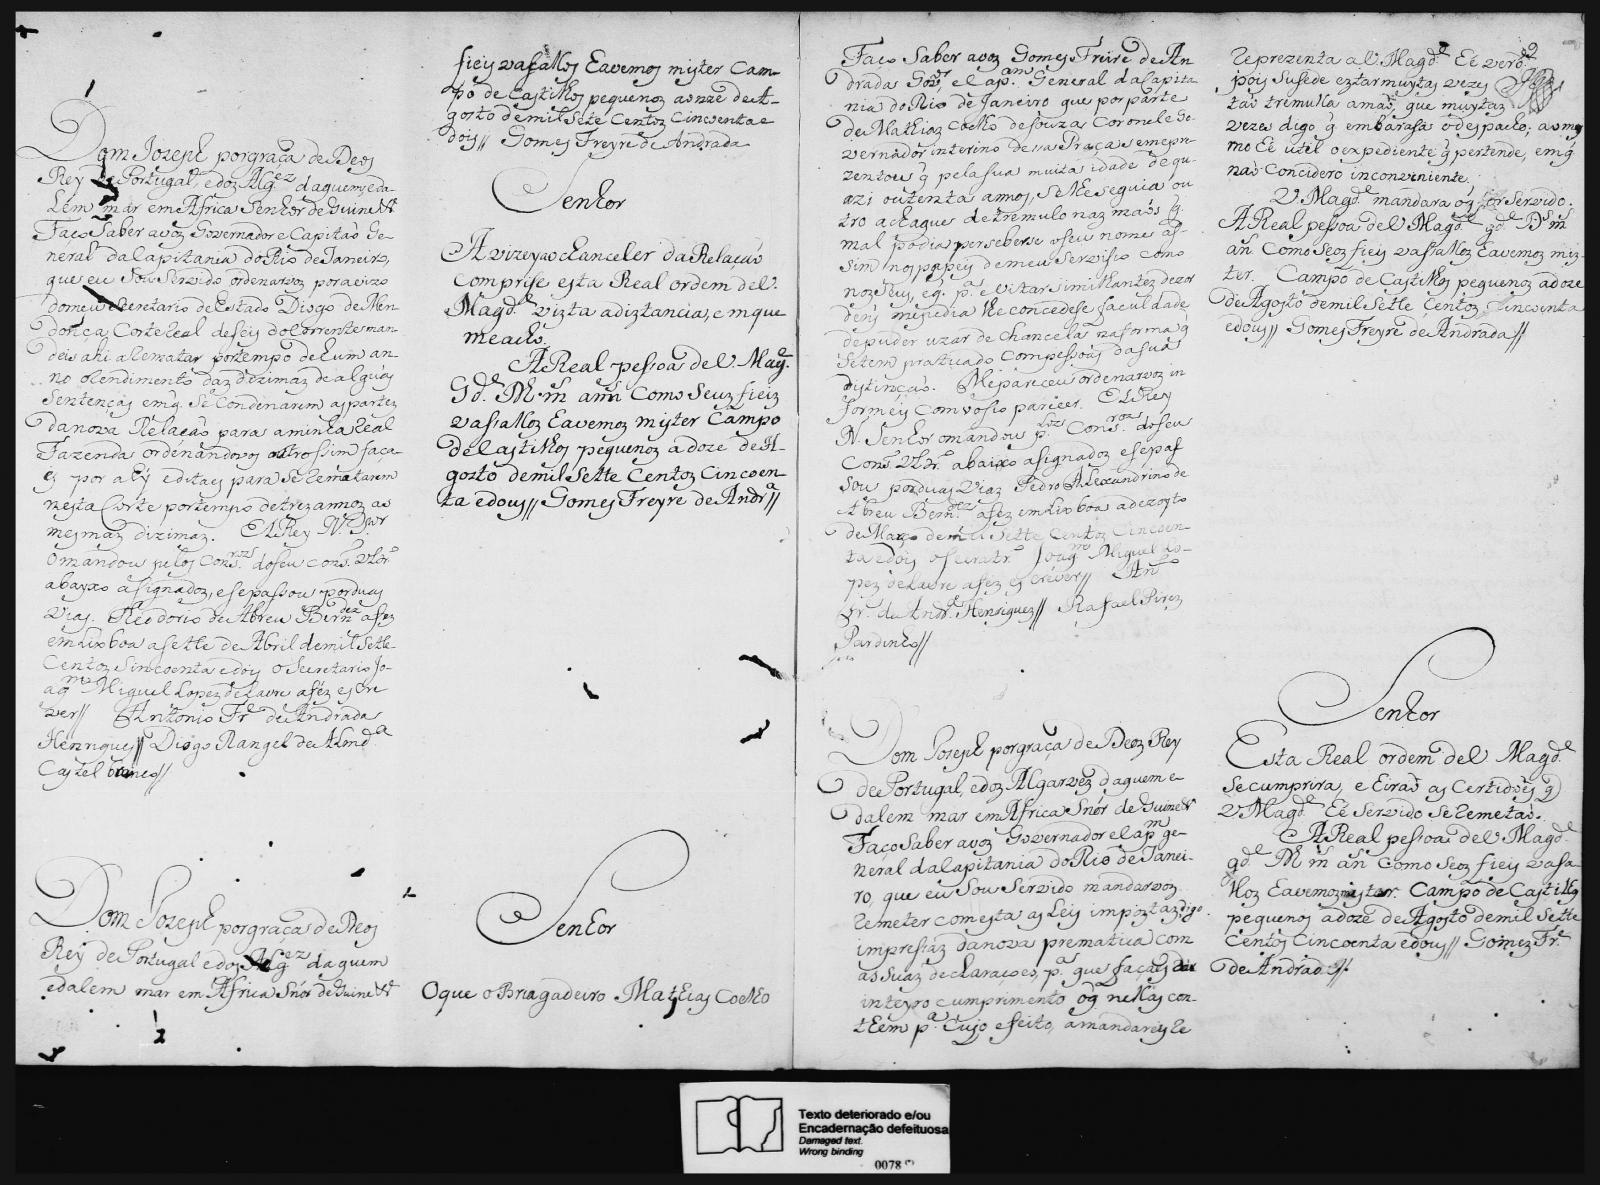 Dom Jozeph por graça de Deos
Rey de Portugal, e dos Alg.ez daquem, e da-
lem mar em Africa Senhor de Guine &.ª
Faço Saber avoz Governador e Capitaõ Ge-
neral da Capitania do Rio de Janeiro,
que eu Sou Servido ordenarvoz por avizo
do meu Secretario de Estado Diogo de Men-
donça Corte Real de seis do Corrente man-
deis ahi arematar por tempo de hum an-
no o rendimento daz dizimaz de alguãs
Sentenças em q. Se Condenarem as partez
da nova Relaçaõ para a minha Real
Fazenda ordenandovos outrossim faça-
es por ahy editaes para Se rematarem
nesta Corte por tempo de trez annoz as
mesmaz dizimaz. ElRey N. S.or
o mandou pelos Cons.roz do seu Cons.º Ultr.º
abayxo asignadoz, e se passou por duas
vias. Theodorio de Abreu Bern.dez a fez
em Lixboa a sette de Abril de mil Sette
Centoz Sincoenta e dois o Secretario Jo-
aq.m Miguel Lopez de Lavre a fez escre
ver// Antonio Fr.e de Andrada
Henriques// Diogo Rangel de Almd.a
Castel branco//
Dom Jozeph por graça de Deos
Rey de Portugal e dos Alg.ez daquem
e dalem mar em Africa Snõr de Guine &.ª
fieis vassallos havemos mister Cam-
po de Castilhos pequenoz a onze de A-
gosto de mil Sete Centoz Cincoenta e
dois// Gomes Freyre de Andrada
Senhor
Avizey ao chanceler da Relaçaõ
comprise esta Real ordem de V.
Mag.de vizta a diztancia, em que
me acho.
A Real pessoa de V. Mag.e
G.de D.s m. ann. Como Seuz fieiz
vassalloz havemoz mister Campo
de Castilhos pequenoz a doze de A-
gosto de mil Sette Centoz Cincoen-
ta e dous// Gomes Freyre de Andr.a//
Senhor
O que o Briagadeiro Mathias Coelho
Faço Saber avoz Gomes Freire de An
drada Gov.or, e Cap.am General da Capita
nia do Rio de Janeiro que por parte
de Mathiaz Coelho de Souza Coronel e Go
vernador interino dessa Praça se me pre
zentou q pela sua muita idade de qu-
azi outenta annos, se lhe seguia ou
tro achaque de tremulo naz maõs q.
mal podia perseberse o seu nome as
sim nos papeis de meu Servisso como
noz seus, e q. p.a evitar simithantez dezor
dens mepedia lhe concedese faculdade
de puder uzar de Chancela na forma q
Setem praticado Compessoas da sua
distinçaõ. Mepareceu ordenarvoz in
formeis Com vosso parecer. ElRey
N. Senhor o mandou p.loz Cons.roz do seu
Cons.º Ultr.º abaixo asignadoz e se pas
sou por duas viaz Pedro Alexandrino de
Abreu Bern.dez a fez em Lixboa a dezoyto
de Março de mil Sette Centoz Cincoen-
ta e dois o Secretr.º Joaq.m Miguel Lo-
pez de Lavre a fez escrever// An.to
Fr.e de Andr.e Henriquez// Rafael Pirez
Pardinho//
Dom Jozeph por graça de Deoz Rey
de Portugal, e doz Algarvez daquem e
dalem mar em Africa Snõr de Guine &.ª
Faço Saber avoz Governador e Cap.m ge-
neral da Capitania do Rio de Janei-
ro, que eu Sou Servido mandarvoz
remeter com esta as Leis impoztaz, digo
impressaz da nova premativa com
as Suaz declaraçoes, p.a que façaes dar
inteyro cumprimento o q nellas con-
them p.a Cujo efeito, amandareis re
2
reprezenta a V. Mag.de hé verd.e
pois Susede eztar muytaz vezes
taõ tremulla a maõ, que muytaz
vezes digo q embarasa o despacho; ao mes
mo hé util o expediente q pertende, em q
naõ Concidero inconveniente.
V. Mag.de mandara o q for Servido.
A Real pessoa de V. Mag.de g.de D.s m.
an. Como Seoz fieis vassalloz havemoz mis-
ter. Campo de Castilhos pequenoz a doze
de Agosto de mil Sette Centoz Cincoenta
e dous// Gomes Freyre de Andrada//
Senhor
Esta Real ordem de V. Mag.de
Se cumprira, e hiraõ as Certidoẽs q
V. Mag.de hé Servido Se remetaõ.
A Real pessoa de V. Mag.de
g.de D.s m. an. Como Seoz fieis vassa-
lloz havemoz mister. Campo de Castilhos
pequenos a doze de Agosto de mil Sette
Centos Cincoenta e dous// Gomez Fr.e
de Andrada//.
Texto deteriorado e/ou
Encadernação defeituosa
Damaged text.
Wrong binding
0078